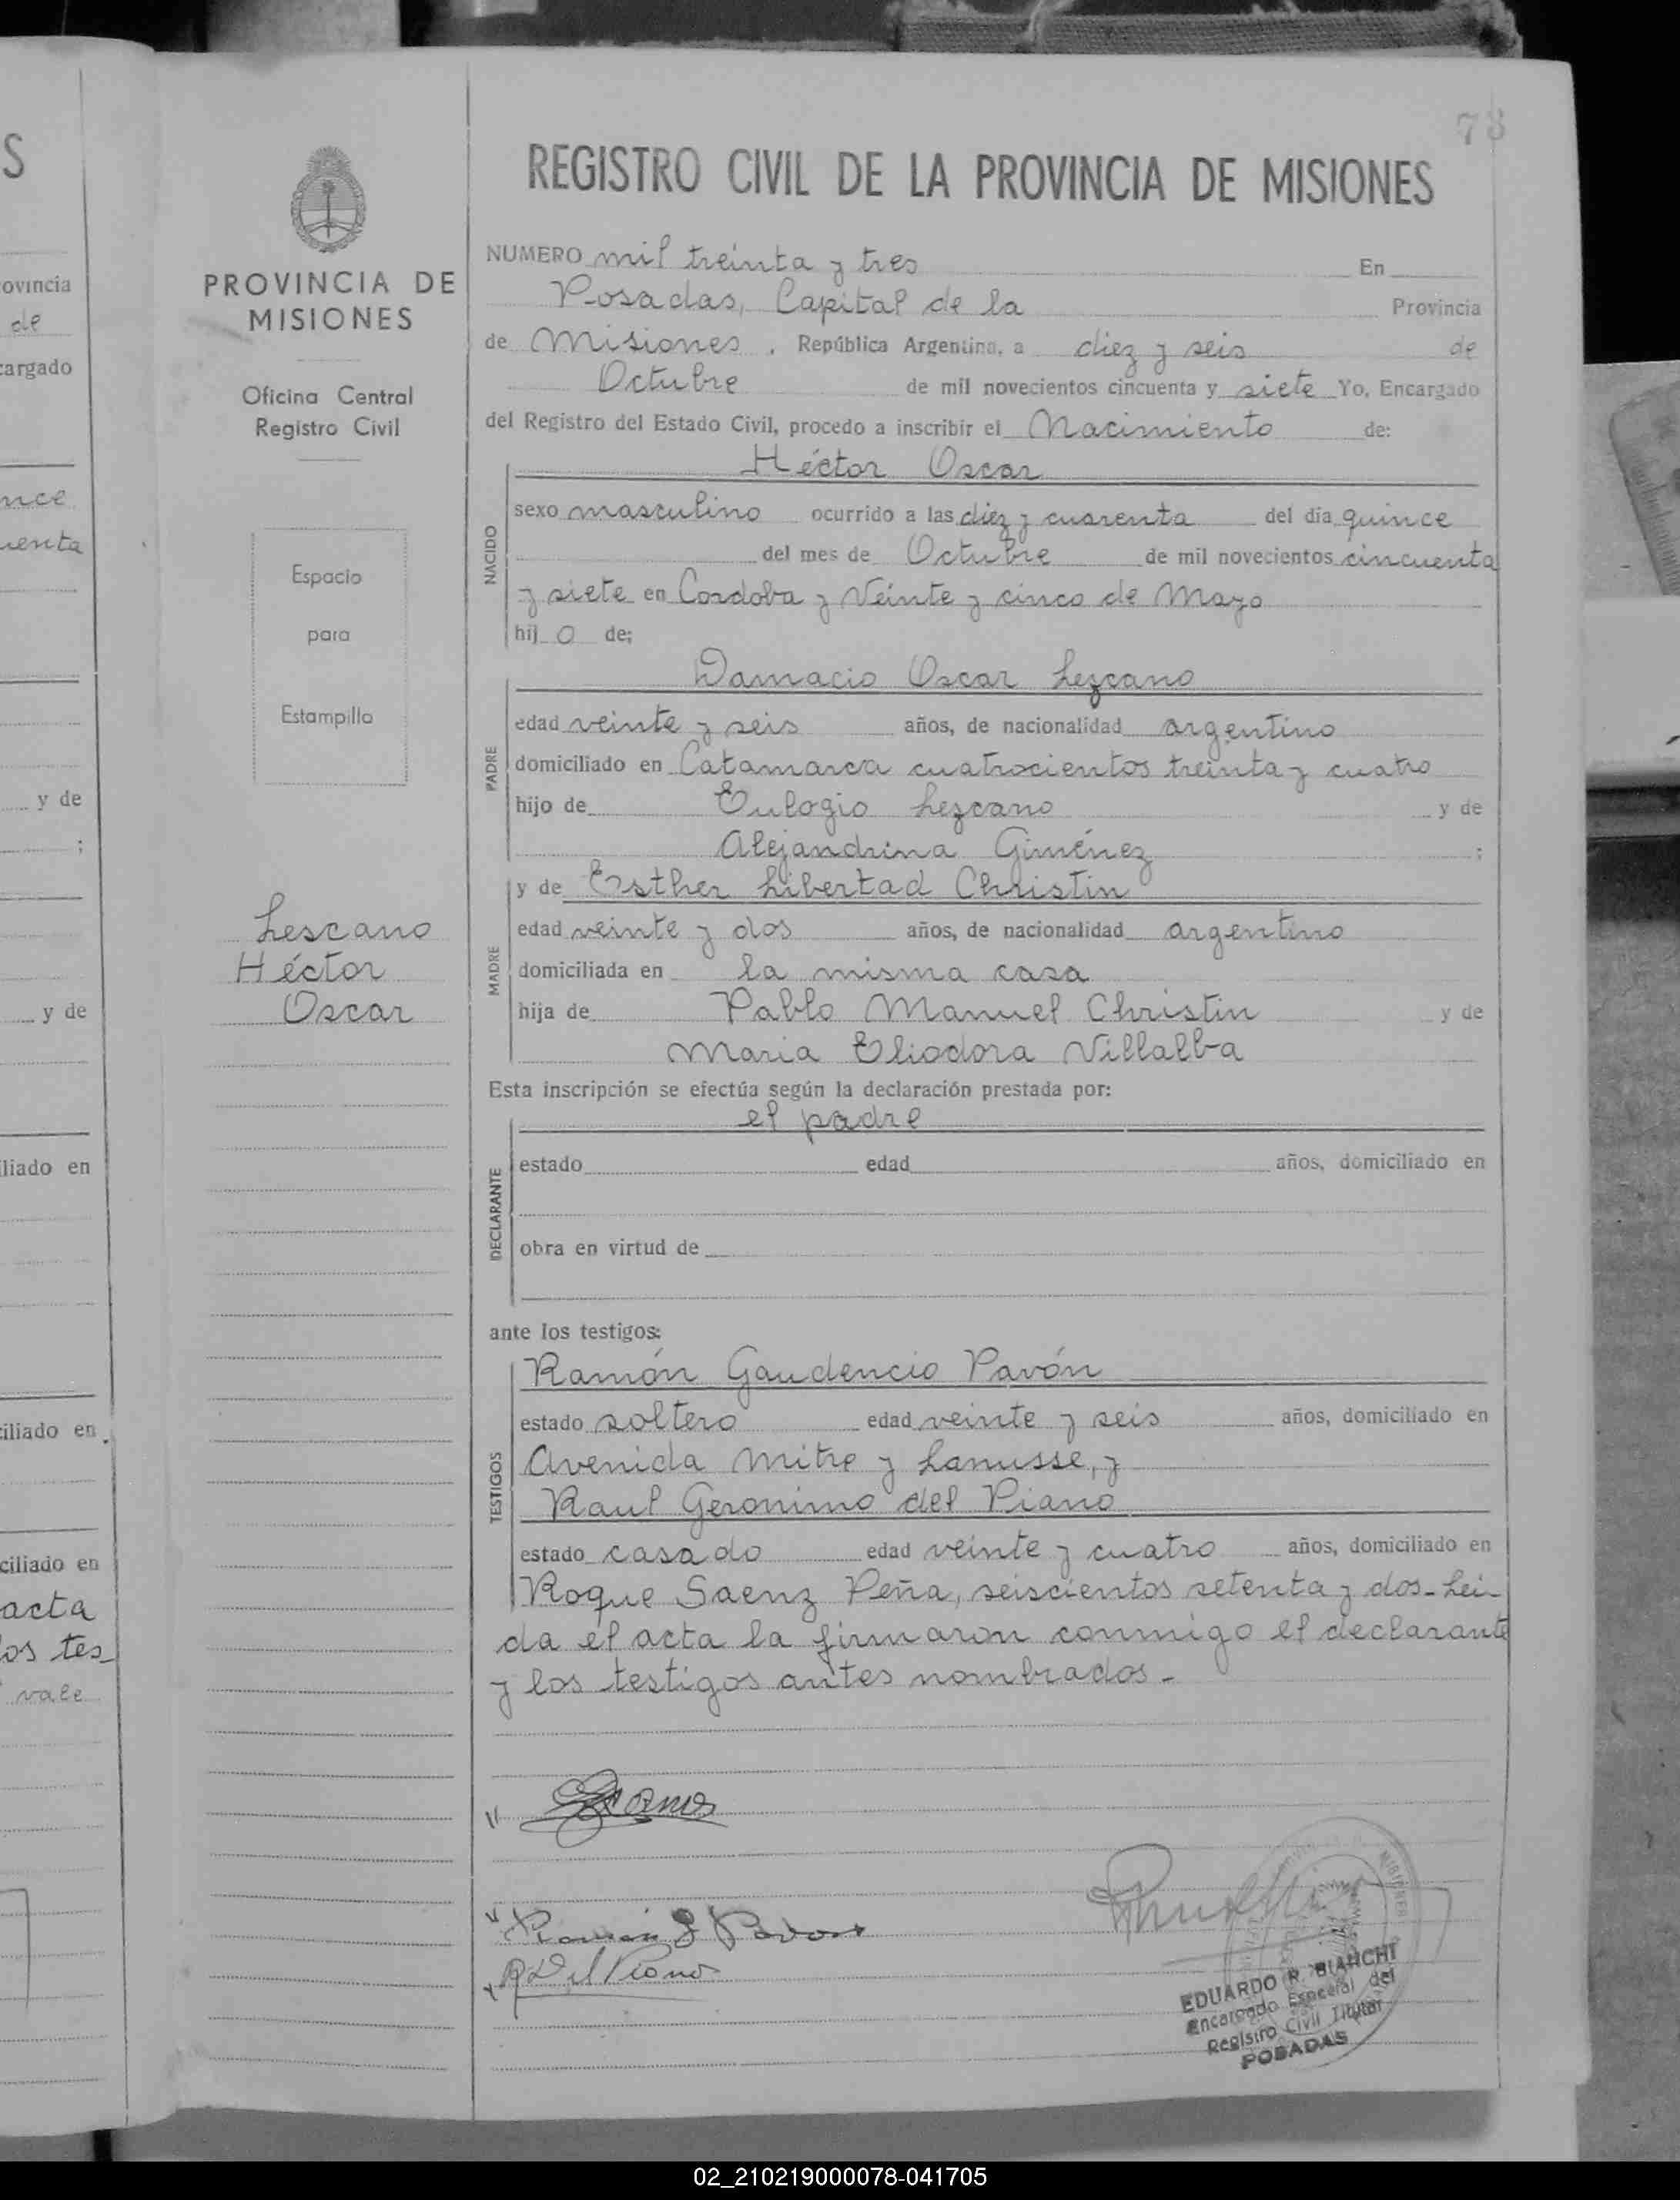 S
ovincia
de
cargado
nce
uenta
y de
;
y de
liado en
ciliado en
ciliado en
acta
os tes
vale
PROVINCIA DE
MISIONES
Oficina Central
Registro Civil
Espacio
para
Estampilla
Lescano
Héctor
Oscar
78
REGISTRO CIVIL DE LA PROVINCIA DE MISIONES
NUMERO mil treinta y tres En
Posadas, Capital de la Provincia
de Misiones, República Argentina, a diez y seis de
Octubre de mil novecientos cincuenta y siete Yo, Encargado
del Registro del Estado Civil, procedo a inscribir el Nacimiento de:
Héctor Oscar
NACIDO
sexo masculino ocurrido a las diez y cuarenta del día quince
del mes de Octubre de mil novecientos cincuenta
y siete en Cordoba y Veinte y cinco de Mayo
hij o de;
Damacio Oscar Lezcano
PADRE
edad veinte y seis años, de nacionalidad argentino
domiciliado en Catamarca cuatrocientos treinta y cuatro
hijo de Eulogio Lezcano y de
Alejandrina Giménez ;
y de Esther Libertad Christin
MADRE
edad veinte y dos años, de nacionalidad argentino
domiciliada en la misma casa
hija de Pablo Manuel Christin y de
Maria Eliodora Villalba
Esta inscripción se efectúa según la declaración prestada por:
el padre
DECLARANTE
estado edad años, domiciliado en
obra en virtud de
ante los testigos:
Ramón Gaudencio Pavón
TESTIGOS
estado soltero edad veinte y seis años, domiciliado en
Avenida Mitre y Lanusse, y
Raul Geronimo del Piano
estado casado edad veinte y cuatro años, domiciliado en
Roque Saenz Peña, seiscientos setenta y dos- Lei-
da el acta la firmaron conmigo el declarante
y los testigos antes nombrados-
Ramón G Pavon
R Del Piano
EDUARDO R. BIANCHI
Encargado Especial del
Registro Civil Titular
POSADAS
MISIONES
02_210219000078-041705